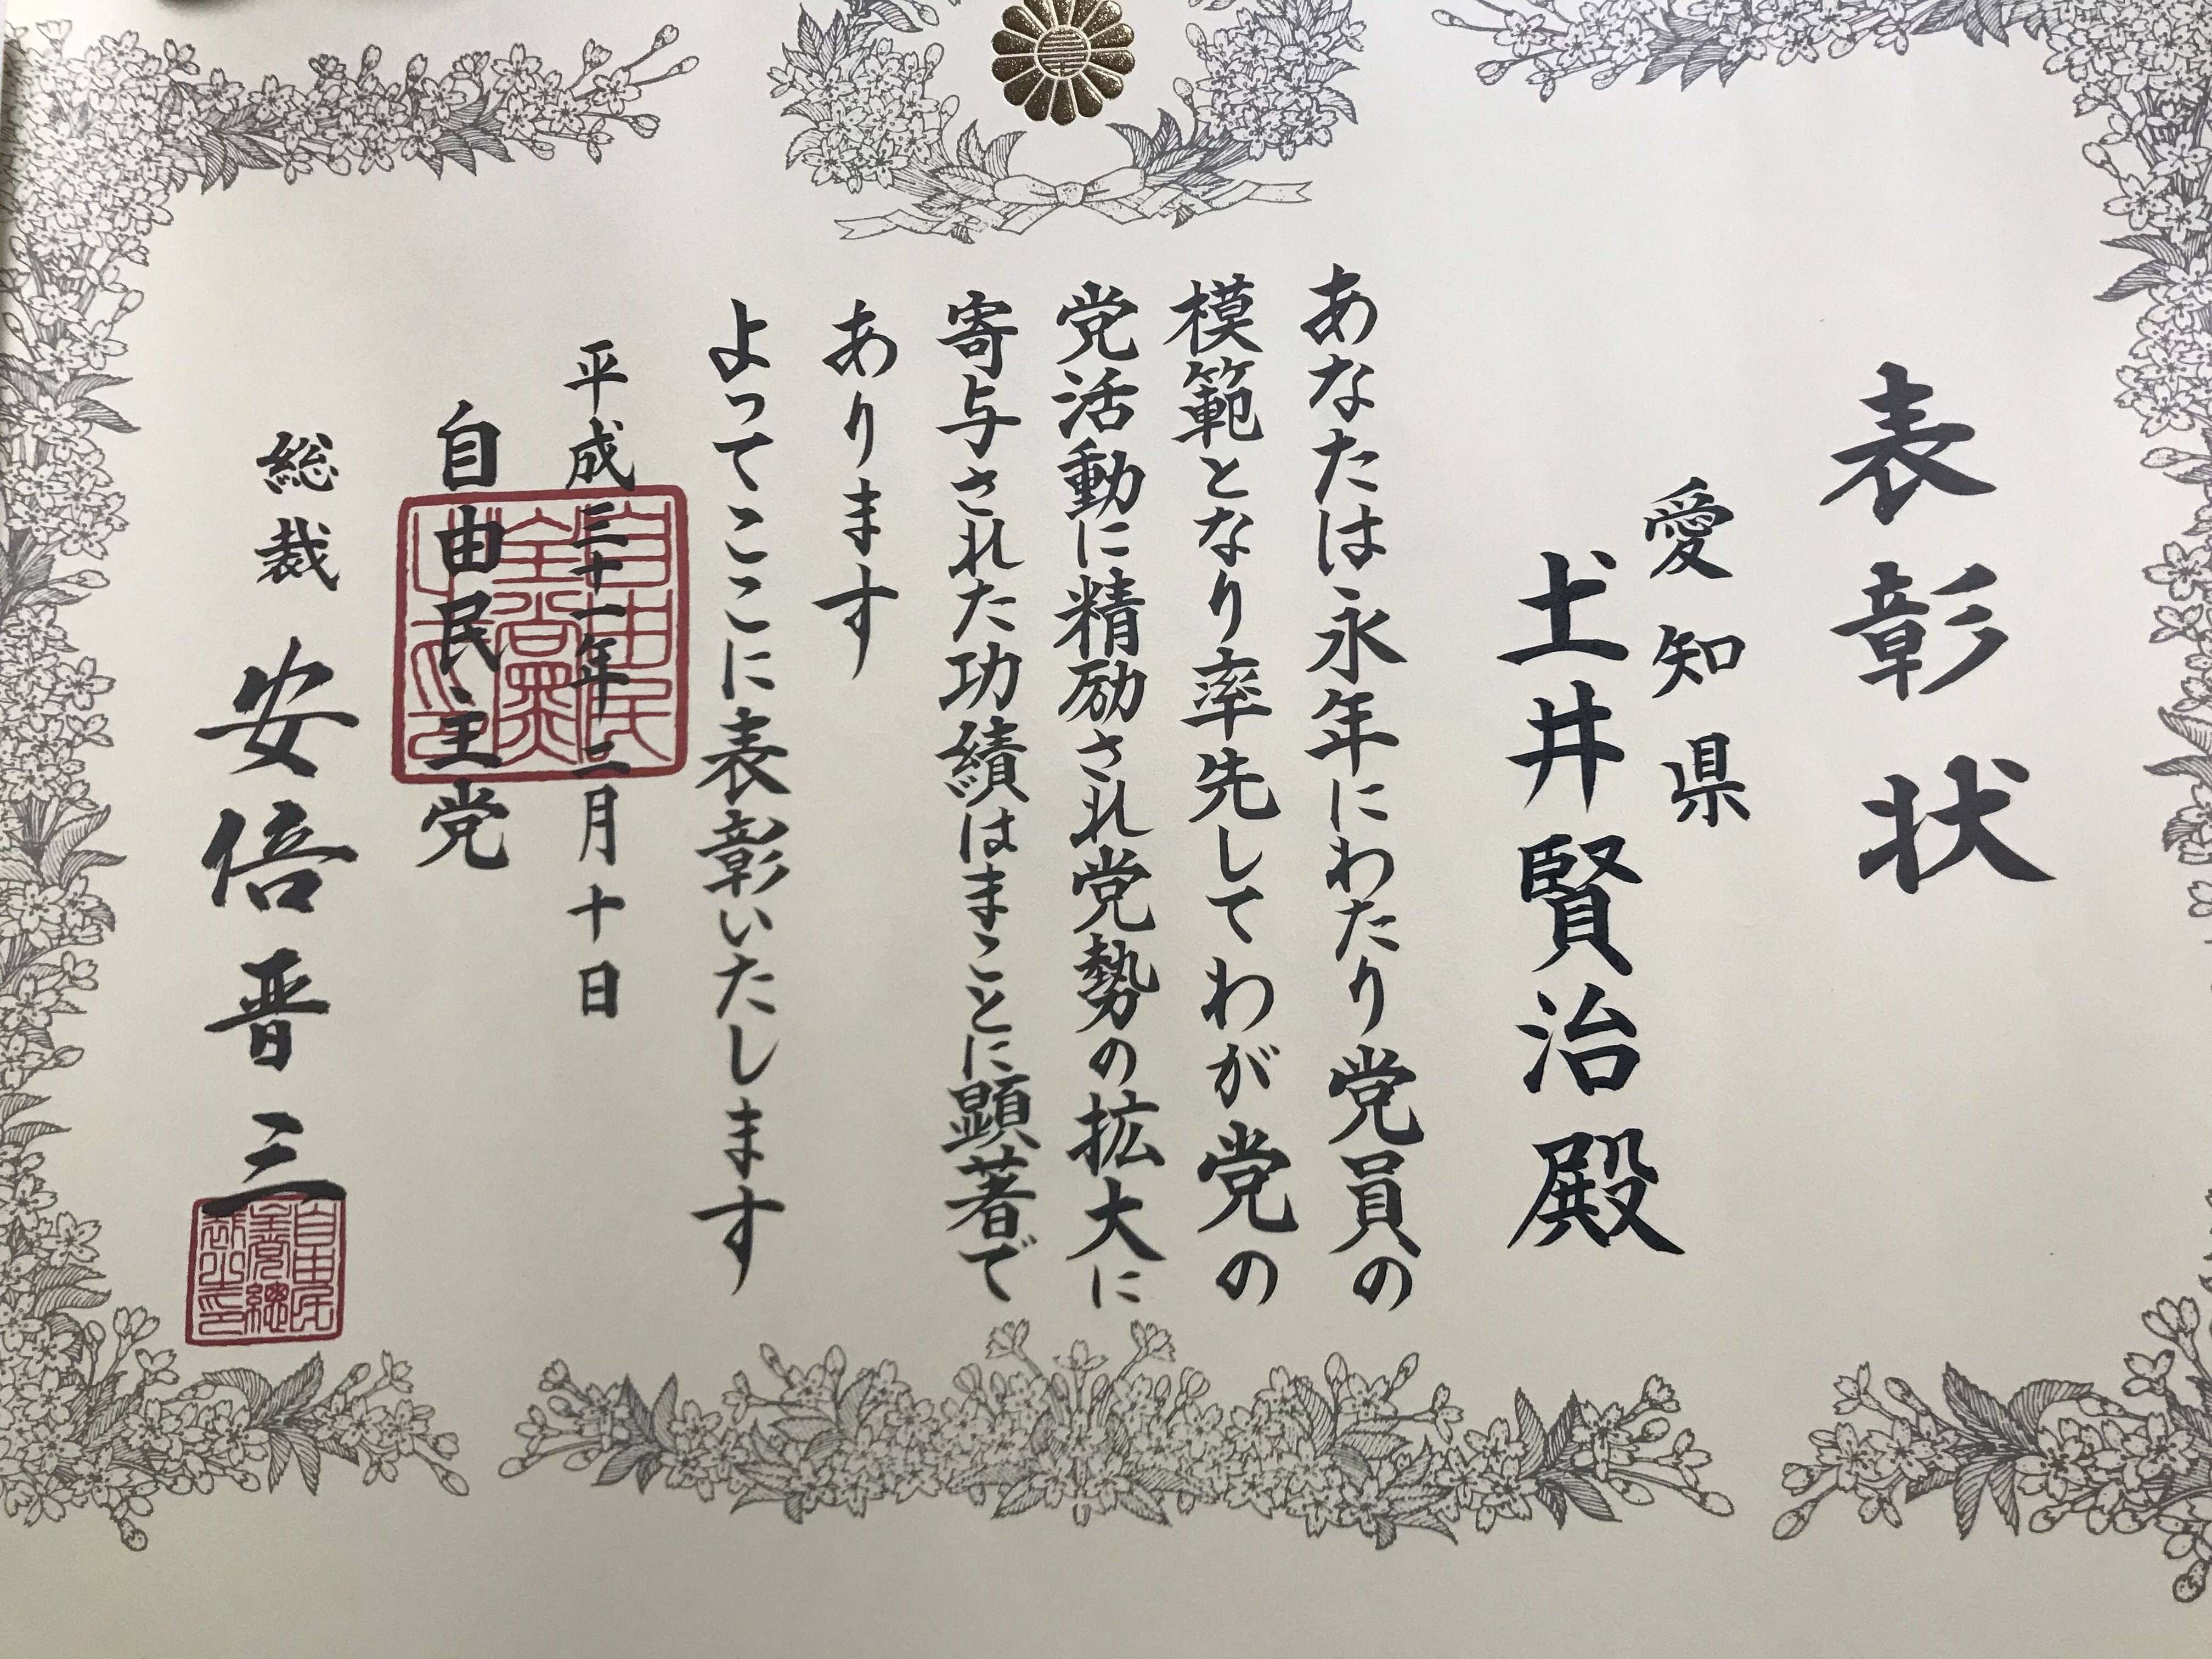 表彰状
愛知県
土井賢治殿
あなたは永年にわたり党員の
模範となり率先してわが党の
党活動に精励され党勢の拡大に
寄与された功績はまことに顕著で
あります
よってここに表彰いたします
平成三十一年二月十日
自由民主党
総裁 安倍晋三